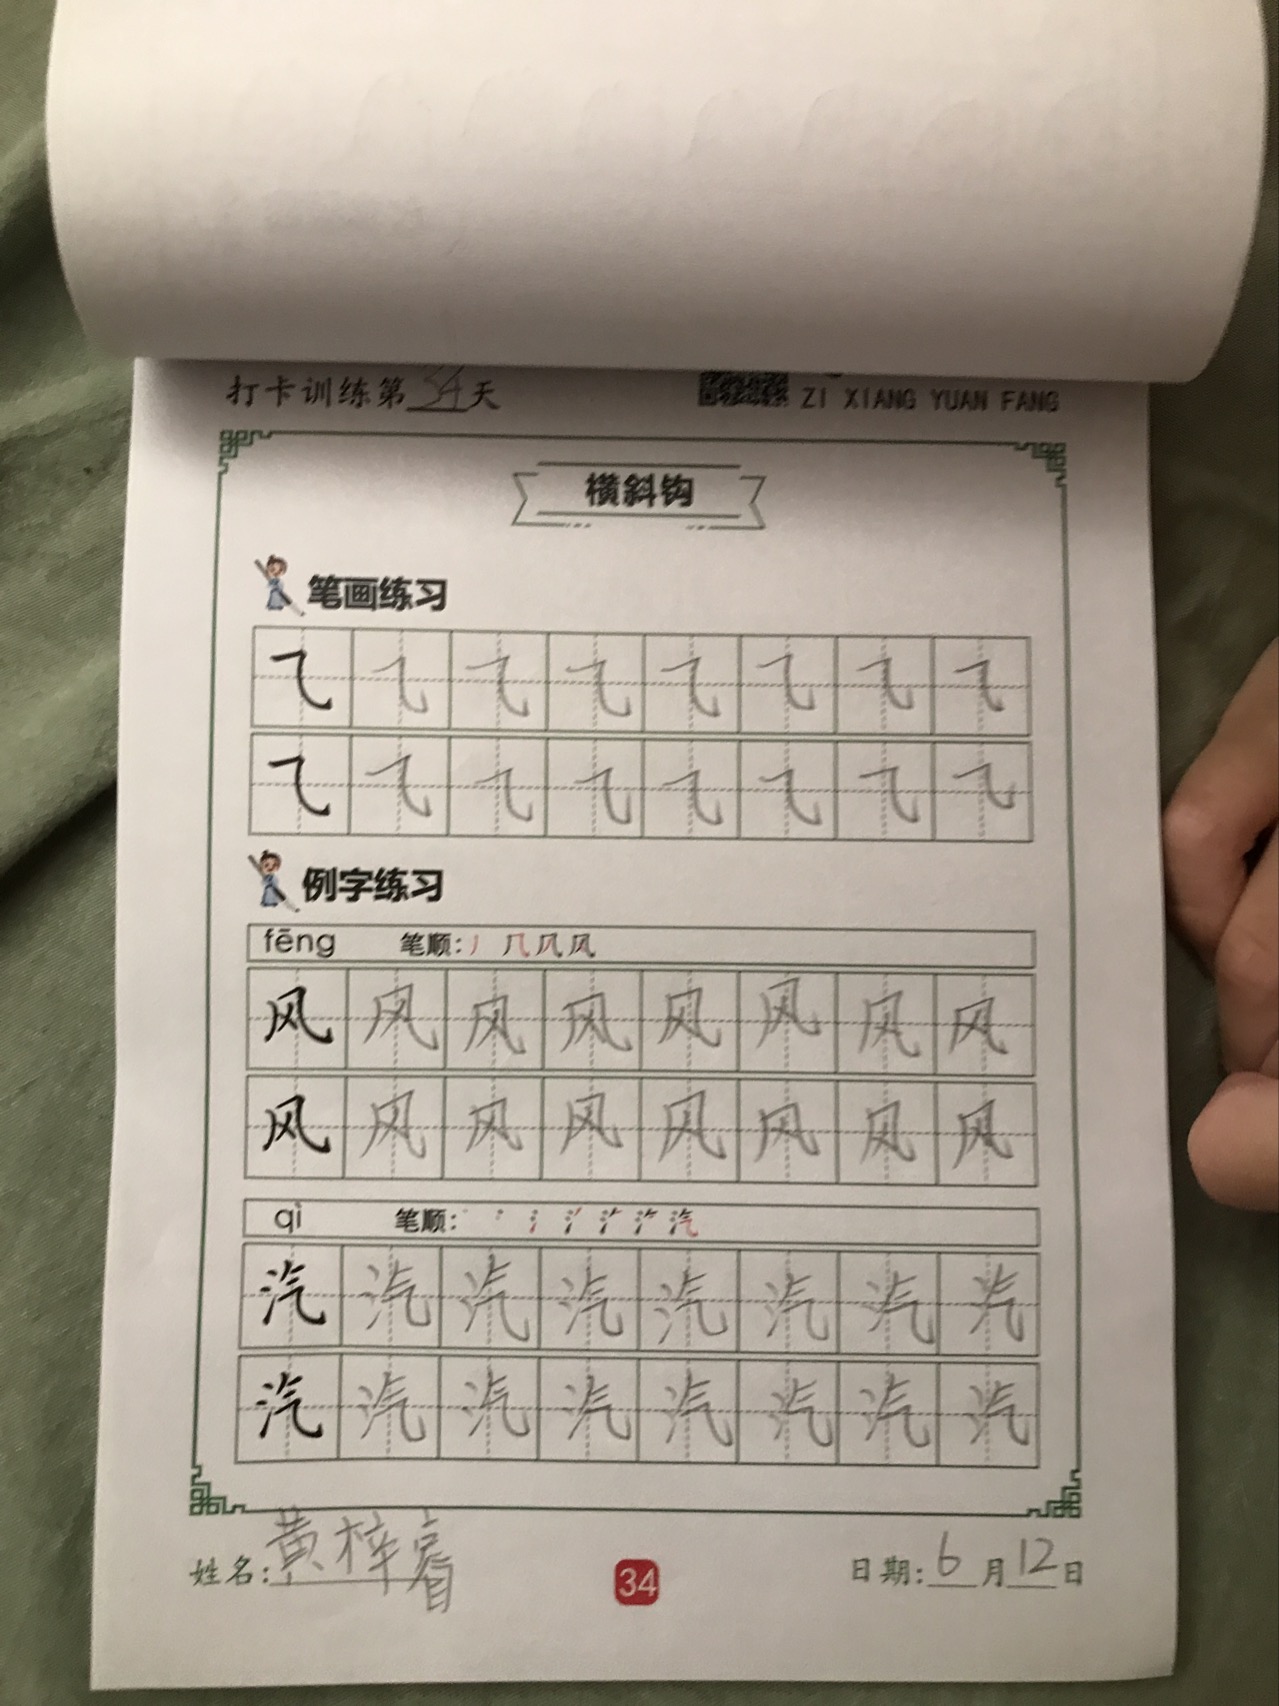 打卡训练第34天
ZI XIANG YUAN FANG
横斜钩
笔画练习
㇈ ㇈ ㇈ ㇈ ㇈ ㇈ ㇈ ㇈
㇈ ㇈ ㇈ ㇈ ㇈ ㇈ ㇈ ㇈
例字练习
fēng 笔顺:丿 几 风 风
风 风 风 风 风 风 风 风
风 风 风 风 风 风 风 风
qì 笔顺:
汽 汽 汽 汽 汽 汽 汽 汽
汽 汽 汽 汽 汽 汽 汽 汽
姓名:黄梓睿
34
日期:6月12日